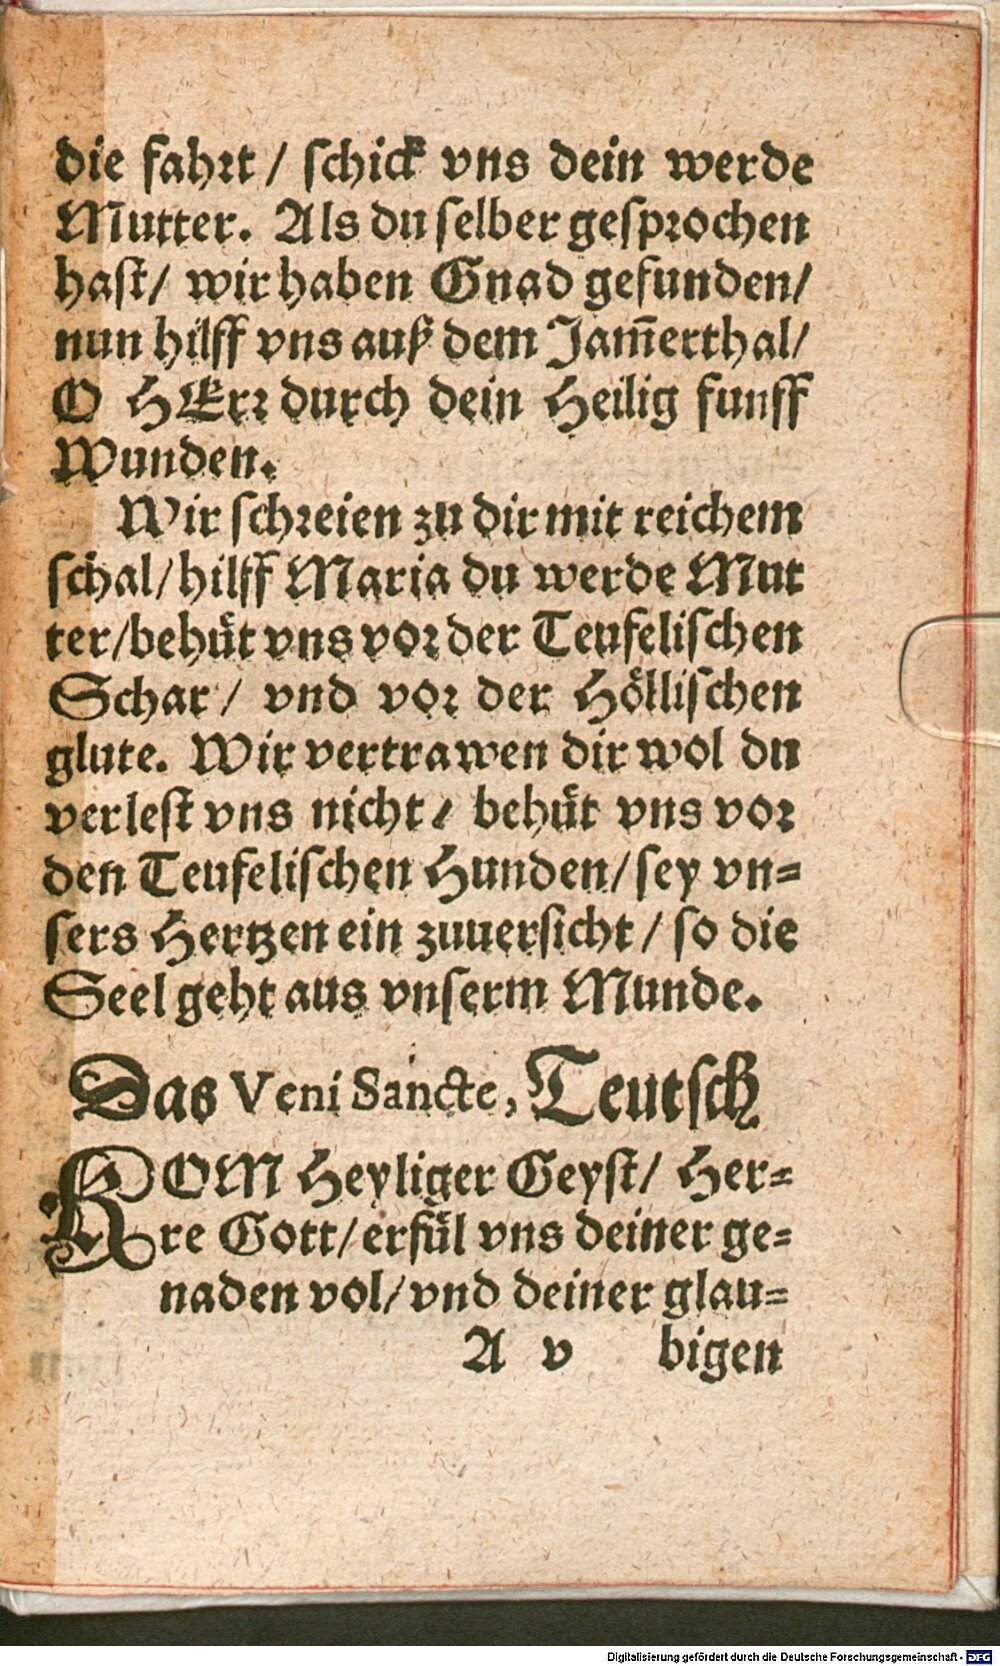 die fahrt / schick vns dein werde
Mutter. Als du selber gesprochen
hast/ wir haben Gnad gefunden/
nun hilff vns auß dem Jam̃erthal/
O HErr durch dein Heilig funff
Wunden.
Wir schreien zu dir mit reichem
schal/hilff Maria du werde Mut
ter/behüt vns vor der Teufelischen
Schar / vnd vor der Höllischen
glute. Wir vertrawen dir wol du
verlest vns nicht / behüt vns vor
den Teufelischen Hunden/sey vn=
sers Hertzen ein zuuersicht / so die
Seel geht aus vnserm Munde.
Das Veni Sancte, Teutsch
KOM Heyliger Geyst/ Her=
re Gott/erfül vns deiner ge=
naden vol/vnd deiner glau=
A v bigen
Digitalisierung gefördert durch die Deutsche Forschungsgemeinschaft - DFG